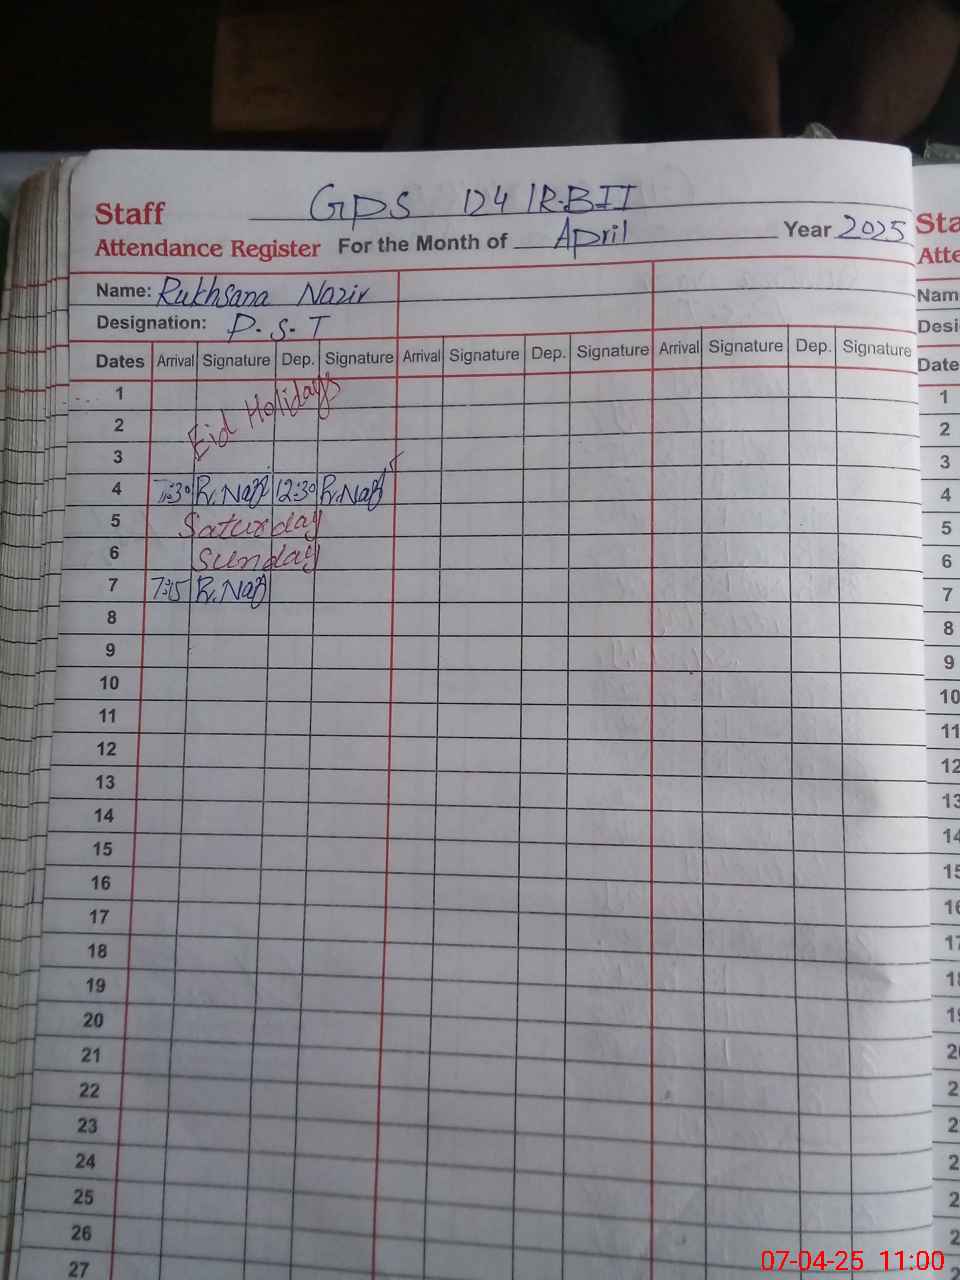 GPS 124 1R-BII
Staff
Attendance Register For the Month of April Year 2025
Name: Rukhsana Nazir
Designation: P.S.T
Dates Arrival Signature Dep. Signature Arrival Signature Dep. Signature Arrival Signature Dep. Signature
1
Eid Holidays
2
3
4 7:30 R.Nazir 12:30 R.Nazir
5 Saturday
6 Sunday
7 7:15 R.Nazir
8
9
10
11
12
13
14
15
16
17
18
19
20
21
22
23
24
25
26
27
Sta
Atte
Nam
Desi
Date
1
2
3
4
5
6
7
8
9
10
11
12
13
14
15
16
17
18
19
20
2
2
2
2
2
2
2
07-04-25 11:00